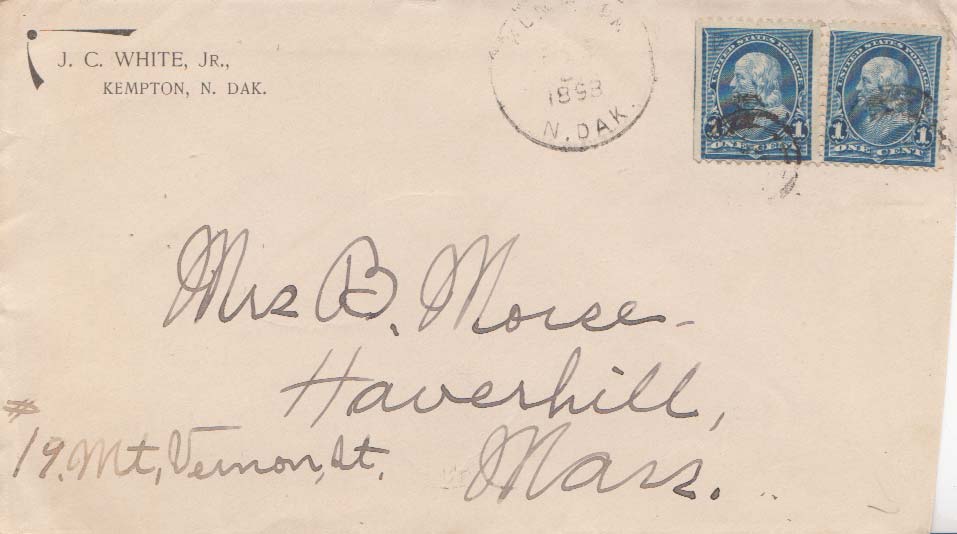 J. C. WHITE, JR.,
KEMPTON, N. DAK.
1898
N. DAK.
UNITED STATES POSTAGE
1 1
ONE CENT
UNITED STATES POSTAGE
1 1
ONE CENT
Mrs B. Morse
Haverhill,
# 19. Mt. Vernon, St.
Mass.